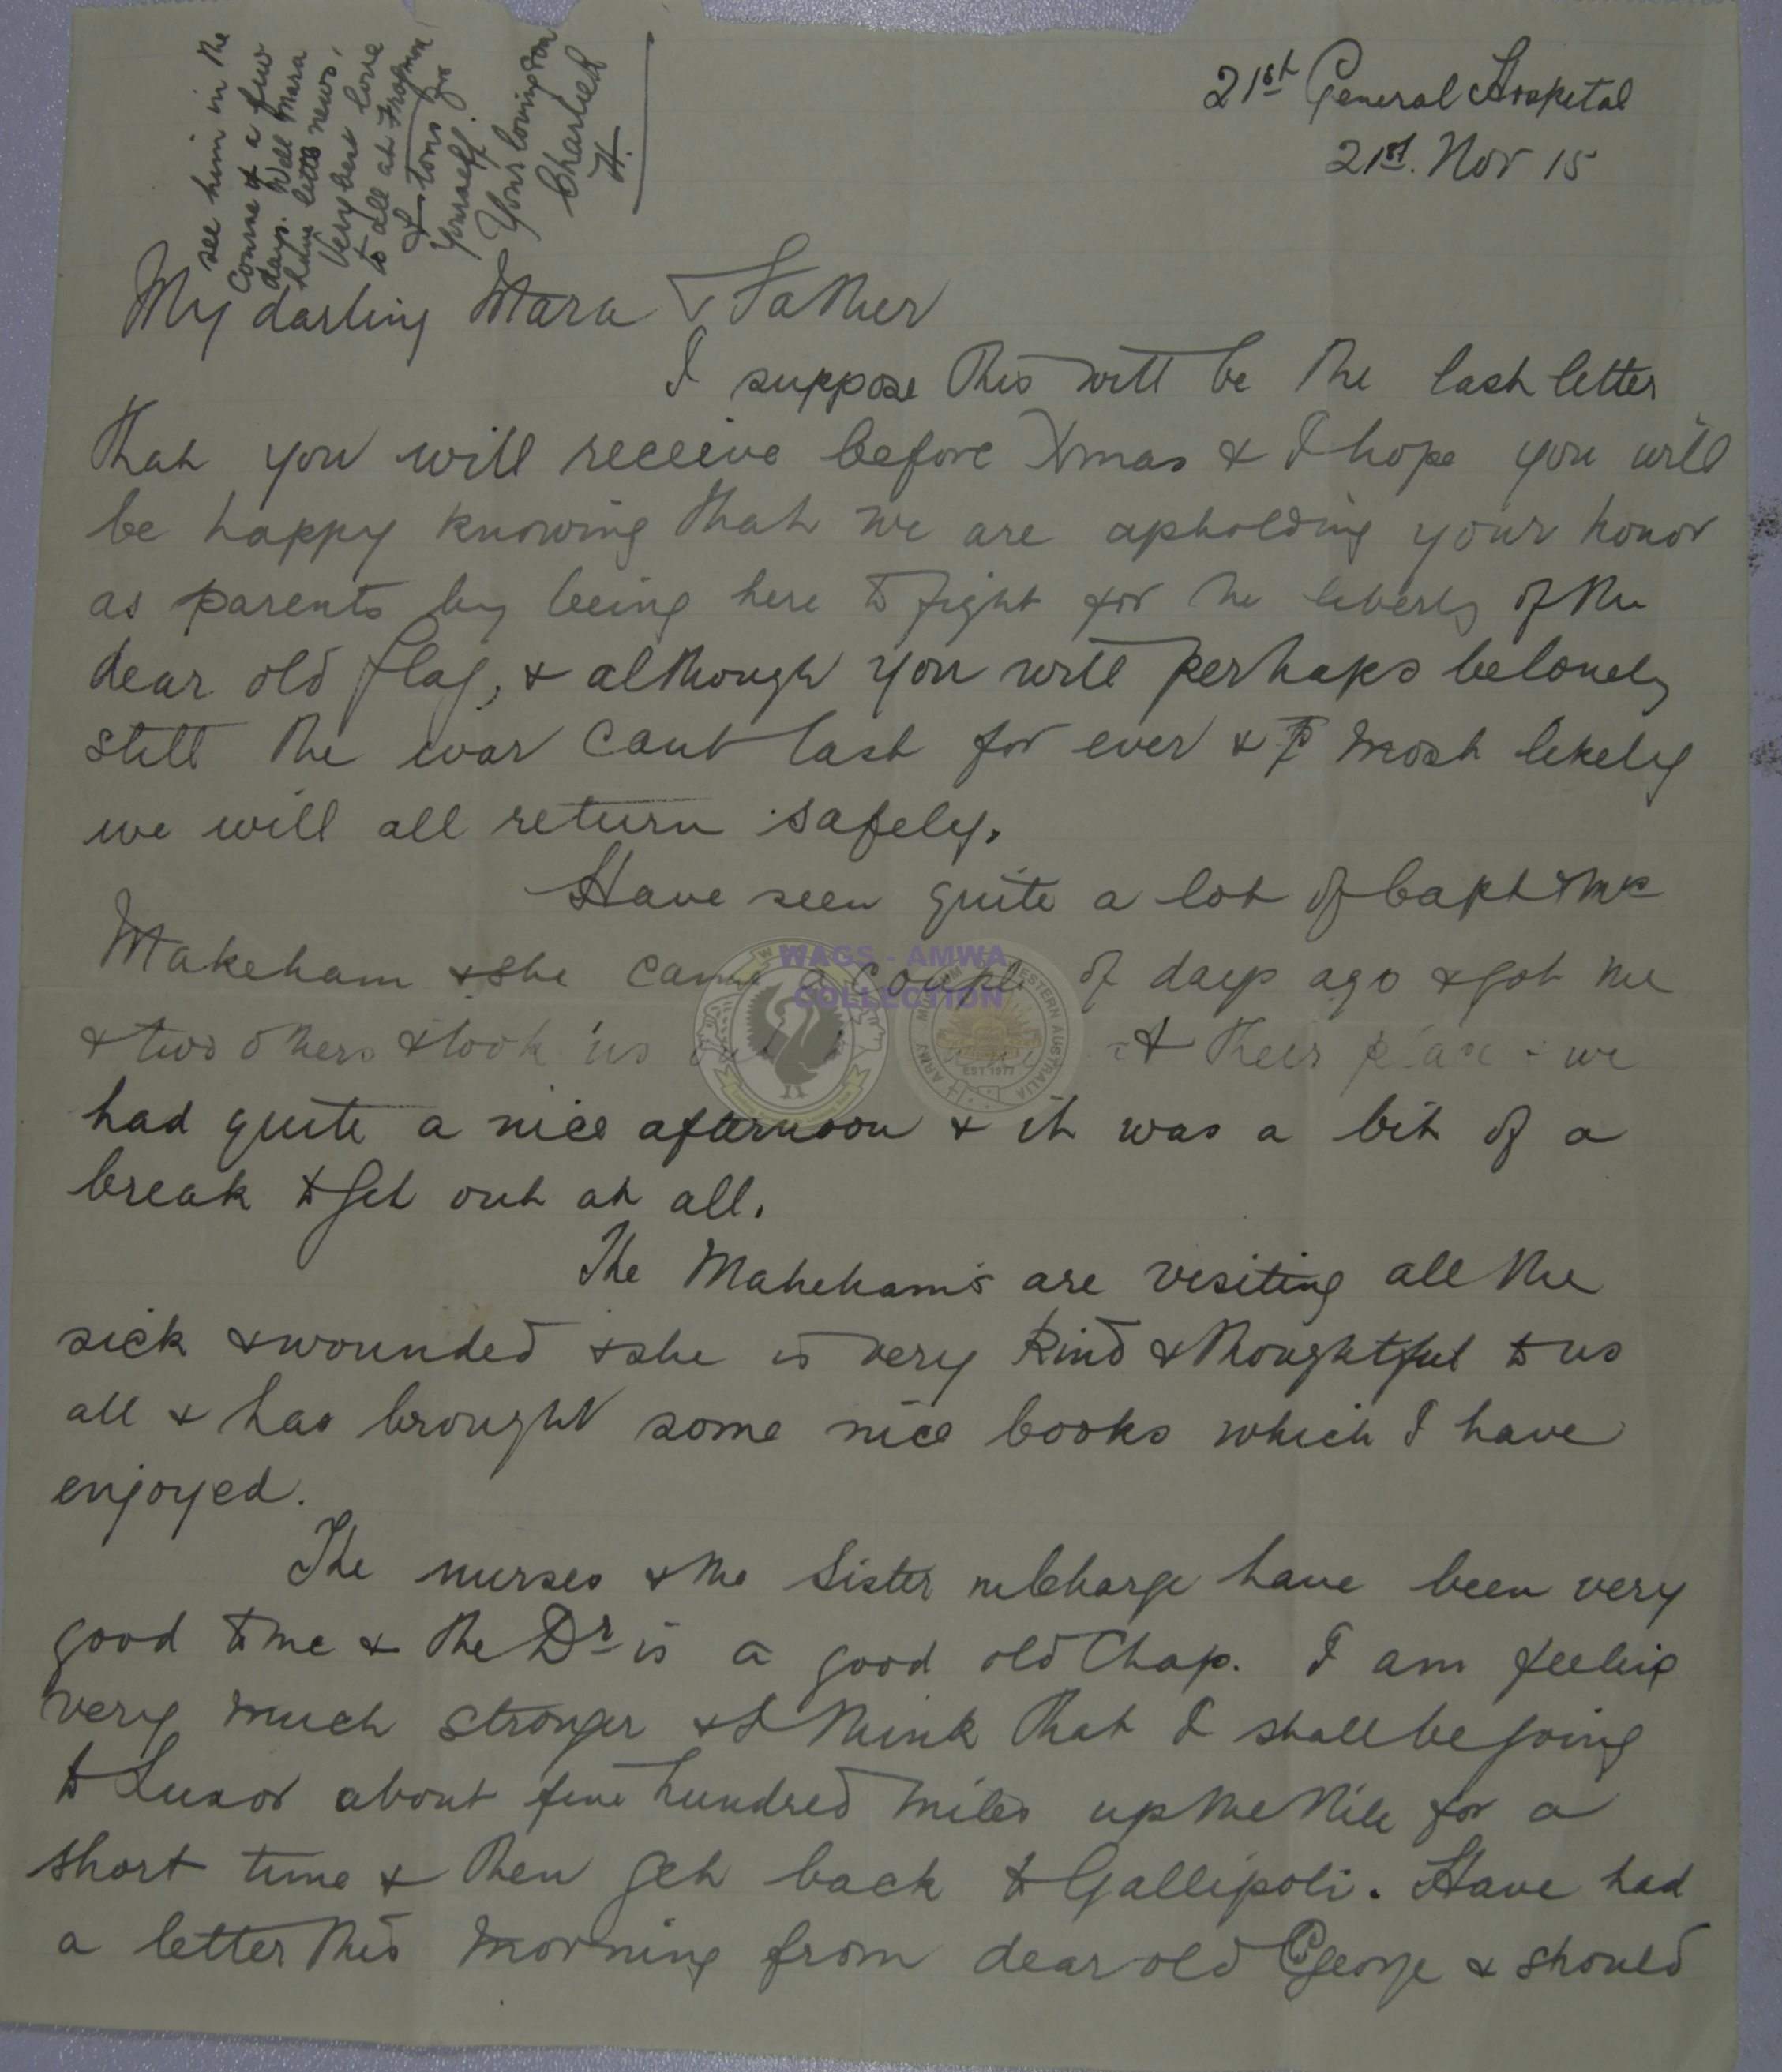 21st General Hospital
21st. Nov 15
My darling Mara & Father
I suppose this will be the last letter
that you will receive before Xmas & I hope you will
be happy knowing that we are upholding your honor
as parents by being here to fight for the liberty of the
dear old flag, & although you will perhaps be lonely
still the war cant last for ever & most likely
we will all return safely.
Have seen quite a lot of Capt & Mrs
Makeham & she came a couple of days ago & got me
& two others & took us out at their place & we
had quite a nice afternoon & it was a bit of a
break to get out at all.
The Makeham's are visiting all the
sick & wounded & she is very kind & thoughtful to us
all & has brought some nice books which I have
enjoyed.
The nurses & the Sister in Charge have been very
good to me & the Dr is a good old Chap. I am feeling
very much stronger & I think that I shall be going
to Luxor about five hundred miles up the Nile for a
short time & then get back to Gallipoli. Have had
a letter this morning from dear old George & should
see him in the
course of a few
days. Well Mara
have little news,
Very best love
to all at
& tons for
yourself.
Your loving son
Charlie
H.
WAGS - AMWA
COLLECTION
ARMY MUSEUM WESTERN AUSTRALIA
EST 1977